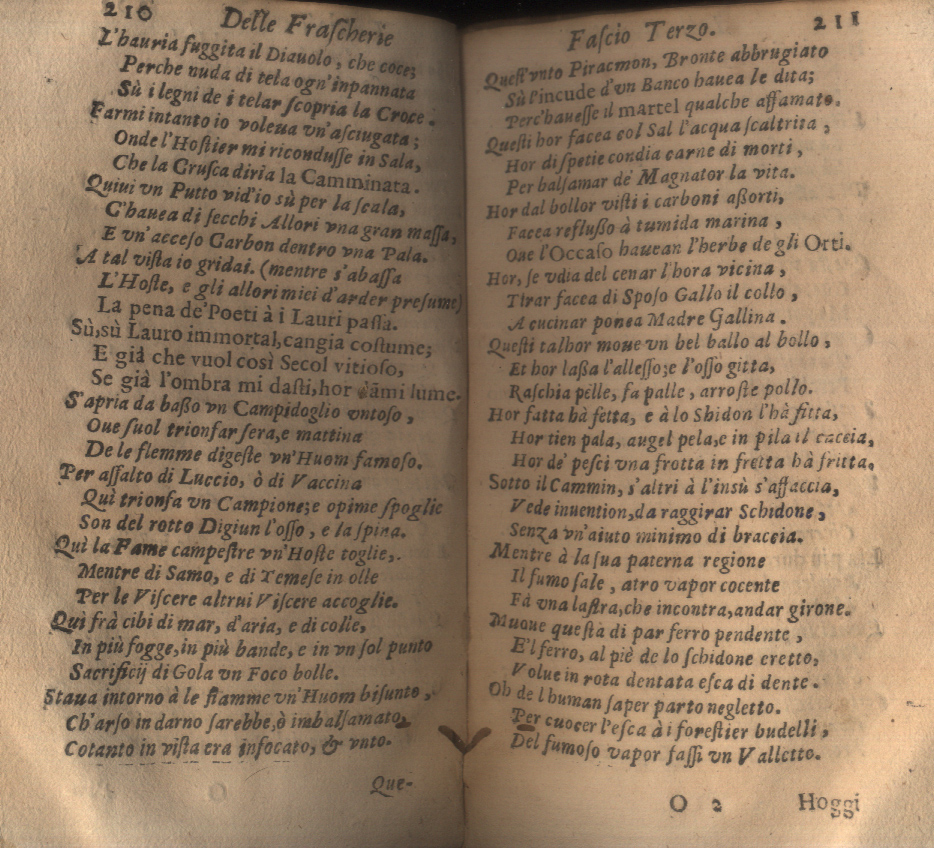 210 Delle Fraſcherie
L'hauria fuggita il Diauolo, che coce;
Perche nuda di tela ogn'inpannata
Sù i legni de i telar ſcopria la Croce.
Farmi intanto io voleua vn'aſciugata;
Onde l'Hoſtier mi riconduſſe in Sala,
Che la Gruſca diria la Camminata.
Quiui vn Putto vid'io sù per la ſcala,
C'hauea di ſecchi Allori vna gran maſſa,
E vn'acceſo Carbon dentro vna Pala.
A tal viſta io gridai. (mentre s'abaſſa
L'Hoſte, e gli allori miei d'arder preſume)
La pena de'Poeti à i Lauri paſſa.
Sù, sù Lauro immortal, cangia coſtume;
E già che vuol così Secol vitioſo,
Se già l'ombra mi daſti, hor dāmi lume.
S'apria da baßo vn Campidoglio vntoſo,
Oue ſuol trionfar ſera, e mattina
De le flemme digeſte vn'Huom famoſo.
Per aſſalto di Luccio, ò di Vaccina
Quì trionfa vn Campione; e opime ſpoglie
Son del rotto Digiun l'oſſo, e la ſpina.
Quì la Fame campeſtre vn'Hoſte toglie,
Mentre di Samo, e di Temeſe in olle
Per le Viſcere altrui Viſcere accoglie.
Qui frà cibi di mar, d'aria, e di colle,
In più fogge, in più bande, e in vn ſol punto
Sacrificij di Gola vn Foco bolle.
Staua intorno à le fiamme vn'Huom biſunto,
Ch'arſo indarno ſarebbe, ò imbalſamato,
Cotanto in viſta era infocato, & vnto.
Que-
Faſcio Terzo. 211
Queſt'vnto Piracmon, Bronte abbrugiato
Sù l'incude d'vn Banco hauea le dita;
Perc'haueſſe il martel qualche affamato.
Queſti hor facea col Sal l'acqua ſcaltrita,
Hor di ſpetie condia carne di morti,
Per balſamar de' Magnator la vita.
Hor dal bollor viſti i carboni aßorti,
Facea refluſſo à tumida marina,
Oue l'Occaſo hauean l'herbe de gli Orti.
Hor, ſe vdia del cenar l'hora vicina,
Tirar facea di Spoſo Gallo il collo,
A cucinar ponea Madre Gallina.
Queſti talhor moue vn bel ballo al bollo,
Et hor laßa l'alleſſo; e l'oſſo gitta,
Raſchia pelle, fa palle, arroſte pollo.
Hor fatta hà fetta, e à lo Shidon l'hà fitta,
Hor tien pala, augel pela, e in pila il caccia,
Hor de' peſci vna frotta in fretta hà fritta.
Sotto il Cammin, s'altri à l'insù s'affaccia,
Vede inuention, da raggirar Schidone,
Senza vn'aiuto minimo di braccia.
Mentre à la ſua paterna regione
Il fumo ſale, atro vapor cocente
Fà vna laſtra, che incontra, andar girone.
Muoue queſta di par ferro pendente,
E'l ferro, al piè de lo ſchidone eretto,
Volue in rota dentata eſca di dente.
Oh de l'human ſaper parto negletto.
Per cuocer l'eſca à i foreſtier budelli,
Del fumoſo vapor faſſi vn Valletto.
O 2 Hoggi